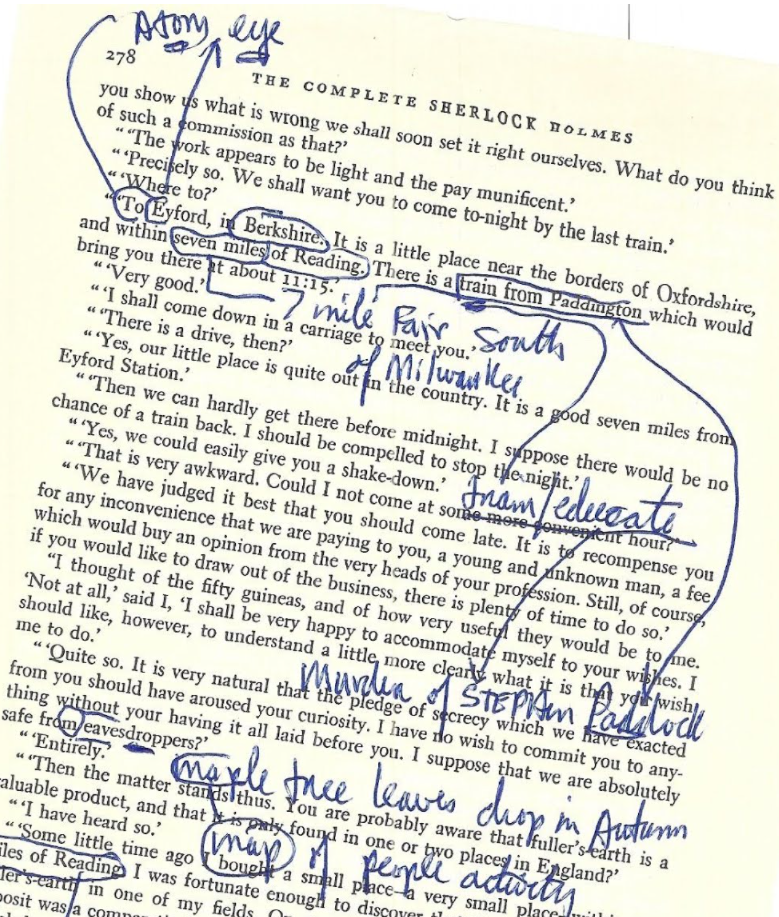 Atom eye
278
THE COMPLETE SHERLOCK HOLMES
you show us what is wrong we shall soon set it right ourselves. What do you think
of such a commission as that?'
"'The work appears to be light and the pay munificent.'
"'Precisely so. We shall want you to come to-night by the last train.'
"'Where to?'
"'To Eyford, in Berkshire. It is a little place near the borders of Oxfordshire,
and within seven miles of Reading. There is a train from Paddington which would
bring you there at about 11:15.'
"'Very good.'
7 mile Fair South
"'I shall come down in a carriage to meet you.'
of Milwaukee
"'There is a drive, then?'
"'Yes, our little place is quite out in the country. It is a good seven miles from
Eyford Station.'
"'Then we can hardly get there before midnight. I suppose there would be no
chance of a train back. I should be compelled to stop the night.'
"'Yes, we could easily give you a shake-down.'
train/educate
"'That is very awkward. Could I not come at some more convenient hour?'
"'We have judged it best that you should come late. It is to recompense you
for any inconvenience that we are paying to you, a young and unknown man, a fee
which would buy an opinion from the very heads of your profession. Still, of course,
if you would like to draw out of the business, there is plenty of time to do so.'
"I thought of the fifty guineas, and of how very useful they would be to me.
'Not at all,' said I, 'I shall be very happy to accommodate myself to your wishes. I
should like, however, to understand a little more clearly what it is that you wish
me to do.'
Murder of STEPHEN Paddock
"'Quite so. It is very natural that the pledge of secrecy which we have exacted
from you should have aroused your curiosity. I have no wish to commit you to any-
thing without your having it all laid before you. I suppose that we are absolutely
safe from eavesdroppers?'
"'Entirely.'
maple tree leaves drop in Autumn
"'Then the matter stands thus. You are probably aware that fuller's-earth is a
valuable product, and that it is only found in one or two places in England?'
"'I have heard so.'
map of people activity
"'Some little time ago I bought a small place—a very small place—
miles of Reading. I was fortunate enough to discover
in one of my fields.
posit was a